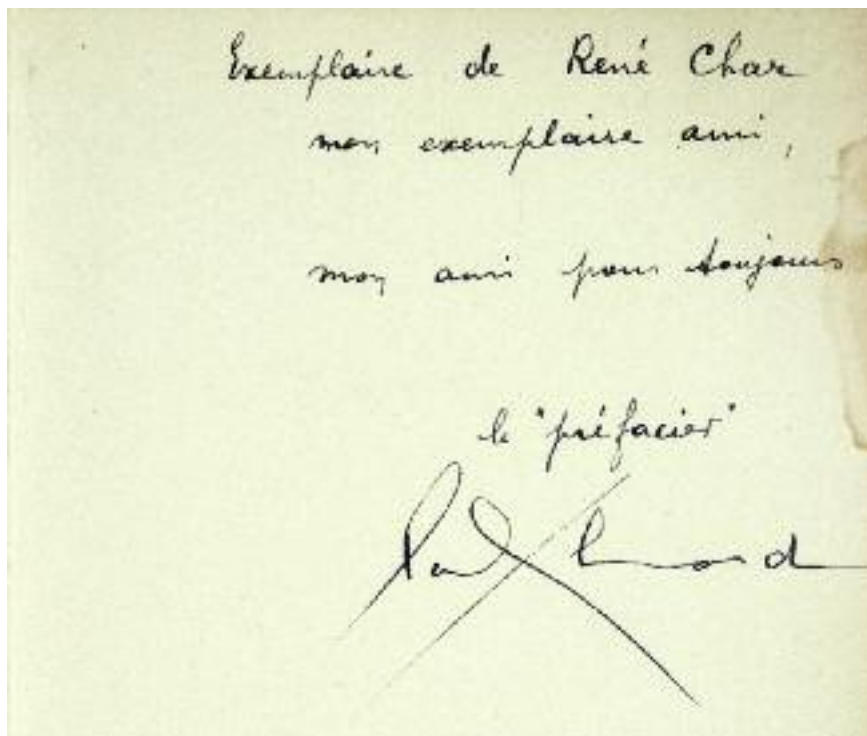 Exemplaire de René Char
mon exemplaire ami,
mon ami pour toujours
le "préfacier"
Paul Eluard